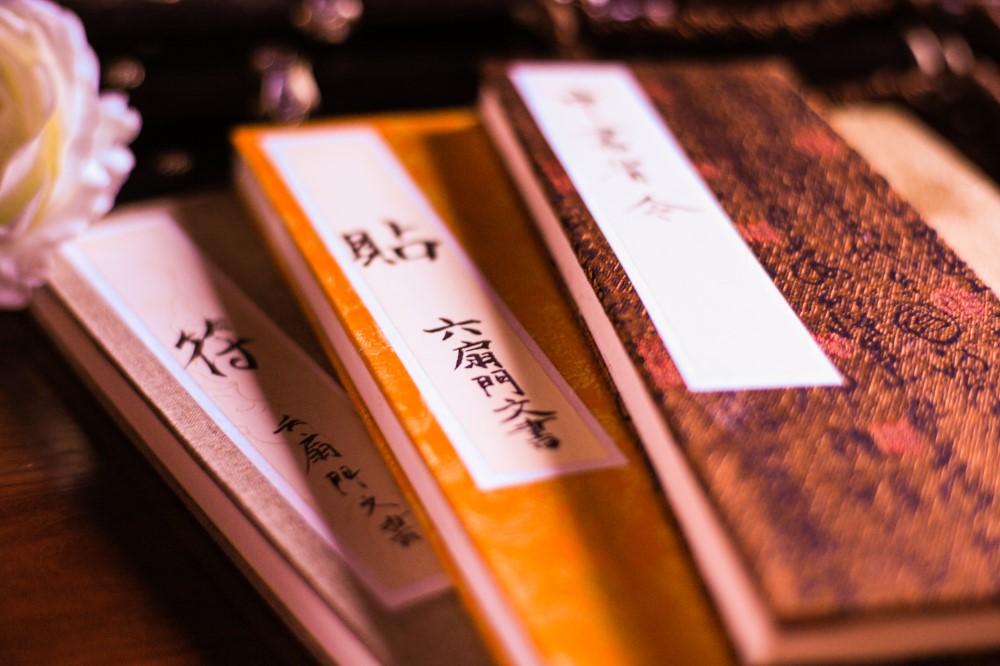 符
六扇門文書
貼
六扇門文書